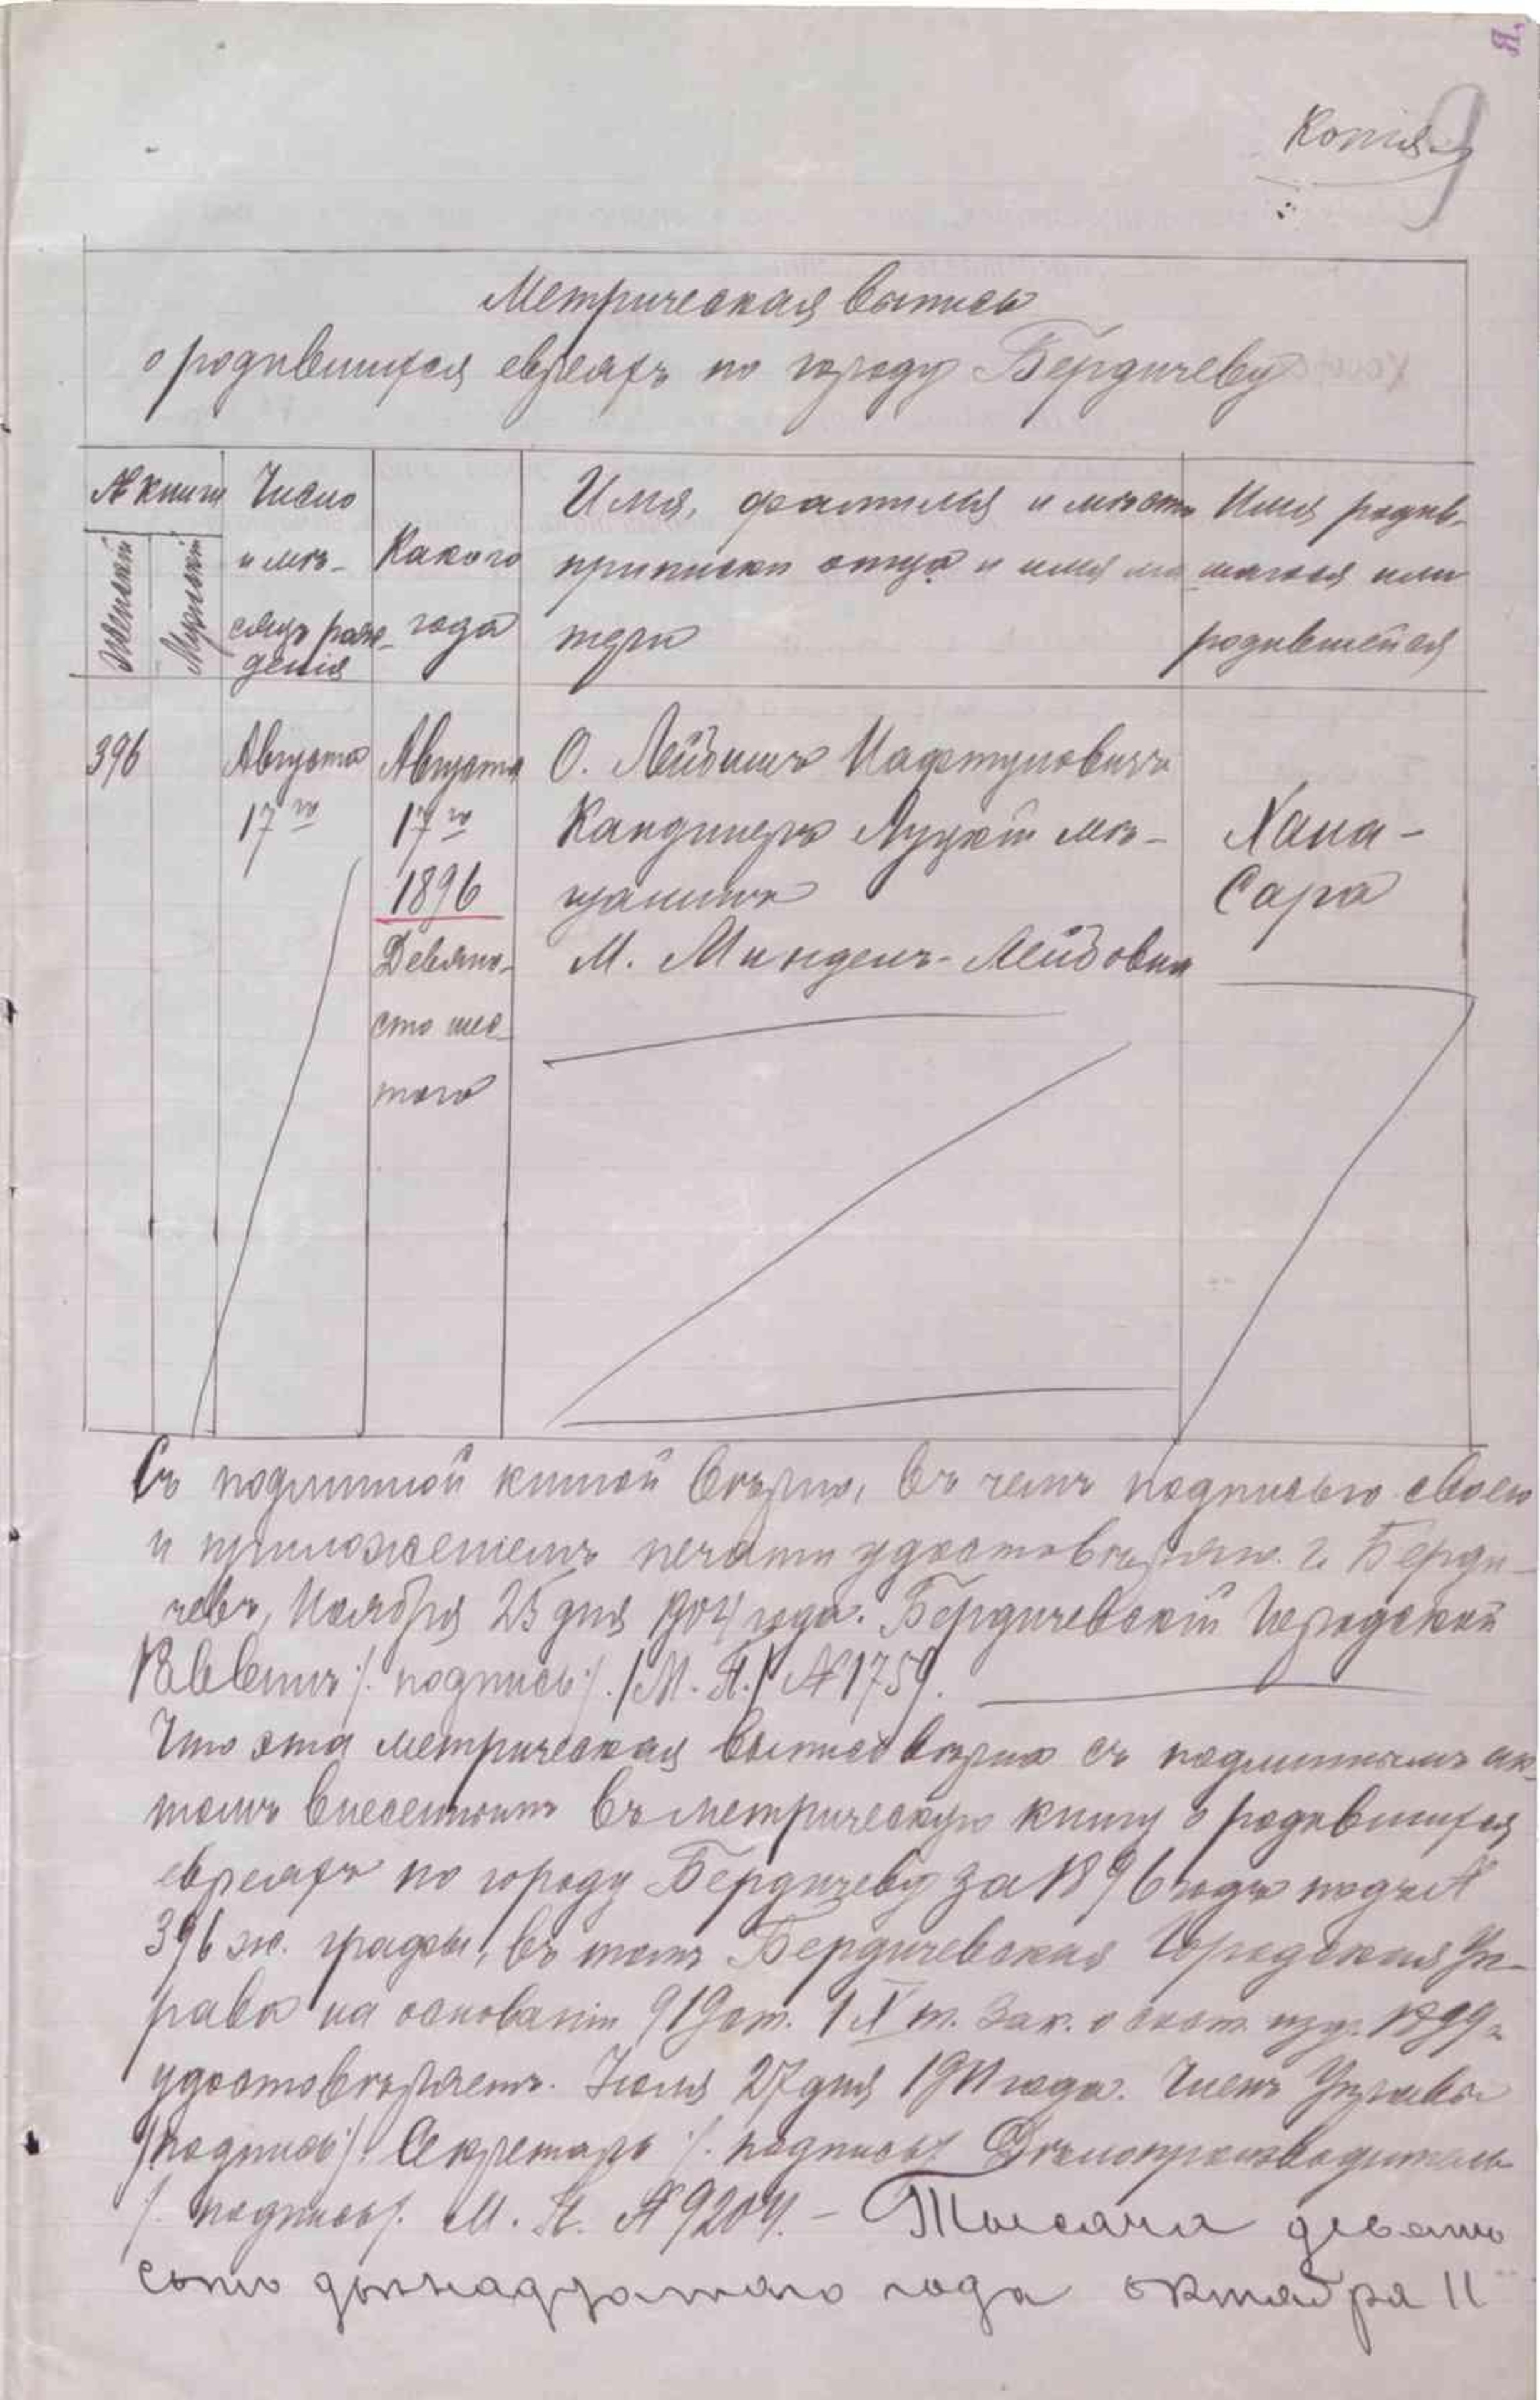 Я,
Копія
9
Метрическая выпись
о родившихся евреяхъ по городу Бердичеву
№ книги
Женскій
Мужскій
Число
и мѣ-
сяцъ рож-
денія
Какого
года
Имя, фамилія и мѣсто
приписки отца и имя ма
тери
Имя родив-
шагося или
родившейся
396
Августа
17го
Августа
17го
1896
Девяно-
сто шес-
того
О. Лейбишъ Нафтуловичъ
Кандинеръ Луцкій мѣ-
щанинъ
М. Миндель-Лейбовна
Хана-
Сара
Съ подлинной книгой вѣрно, въ чемъ подписью своею
и приложеніемъ печати удостовѣряю. г. Берди-
чевъ, Ноября 25 дня 1904 года. Бердичевскій Городской
Раввинъ /. подпись /. /М. П./ № 1759.
Что эта метрическая выпись вѣрна съ подлиннымъ ак-
томъ внесеннымъ въ метрическую книгу о родившихся
евреяхъ по городу Бердичеву за 1896 годъ подъ №
396 ж. графы, въ томъ Бердичевская Городская Уп-
рава на основаніи 919 ст. IX т. Зак. о сост. изд. 1899 г.
удостовѣряетъ. Іюля 27 дня 1911 года. Членъ Управы
/подпись/. Секретарь /. подпись/. Дѣлопроизводитель
/. подпись/. М. П. № 9204. - Тысяча девять
сотъ двѣнадцатаго года октября 11